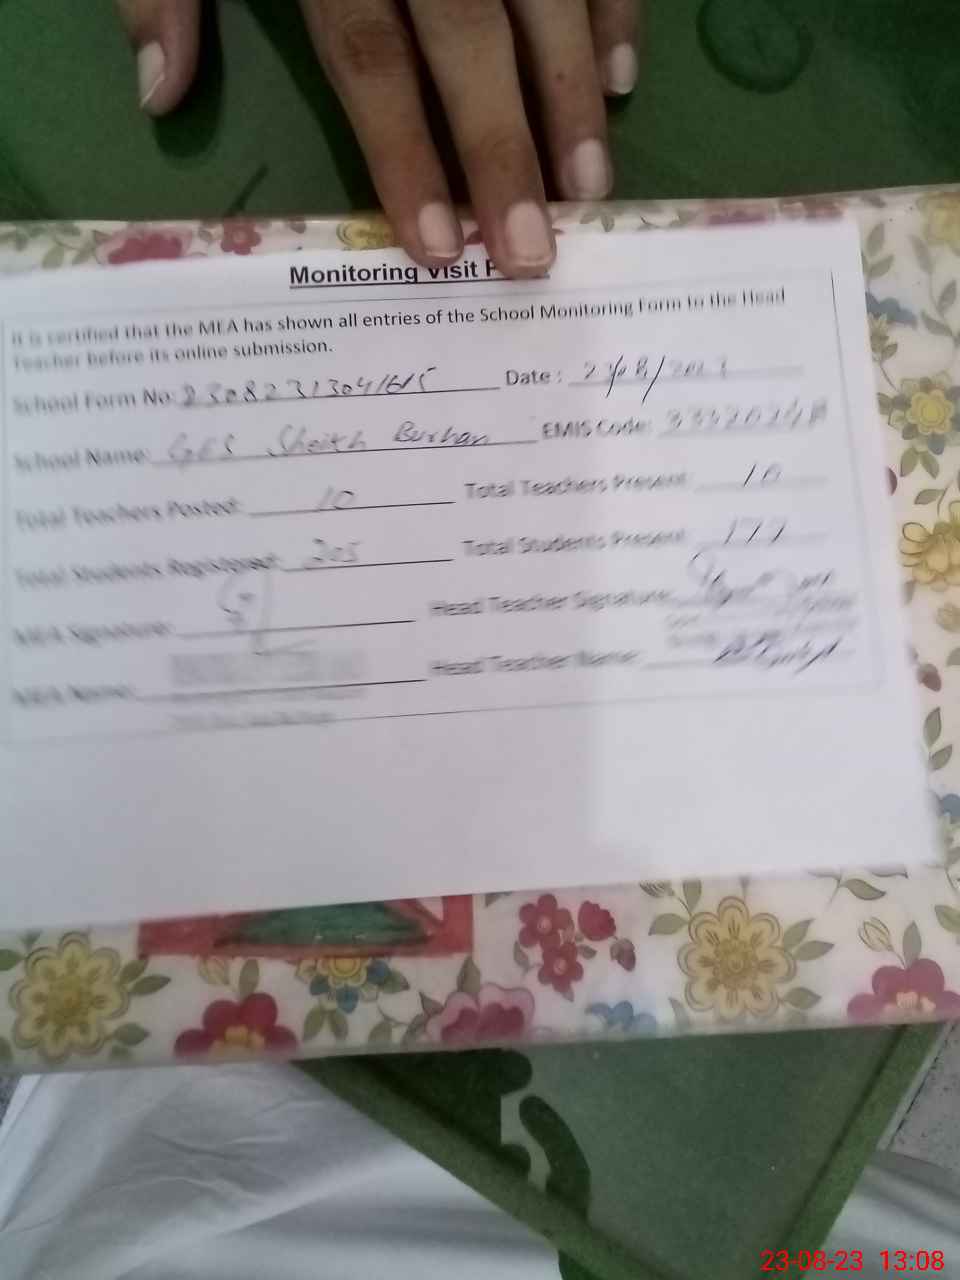 Monitoring Visit
It is certified that the MEA has shown all entries of the School Monitoring Form to the Head
Teacher before its online submission.
School Form No: 23082313041615 Date: 23/08/2023
School Name: GES Sheikh Burhan EMIS Code:
Total Teachers Posted: 10 Total Teachers Present: 10
Total Students Registered: 205 Total Students Present: 177
MEA Signature: Head Teacher Signature:
MEA Name: Head Teacher Name:
23-08-23 13:08